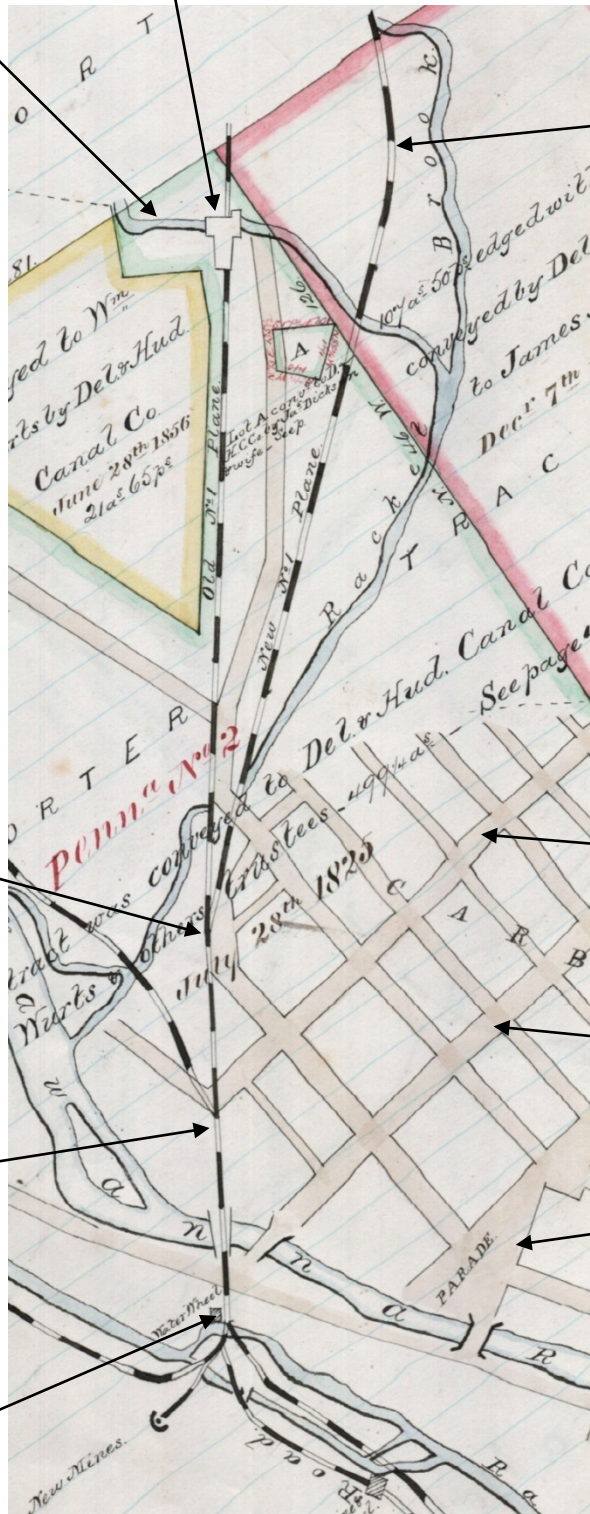 O R T
81.
yed to Wm
rts by Del. & Hud.
Canal Co.
June 28th 1856
21as 65ps
Old No 1 Plane.
A
126
Lot A conv. to D.
H.C.Co. by Jas Dickson
& wife
See p.
New No 1 Plane.
Brook.
10 as 50 ps edged wit
conveyed by Del
to James
Decr 7th
Racket
T R A C
ORTER
Penna No 2
tract was conveyed to Del. & Hud. Canal Co
Wurts & others, trustees - 499 1/4 as - See page
July 28th 1825
C A R B
a n n a R
PARADE.
Water Wheel
New Mines.
Road.
Ra